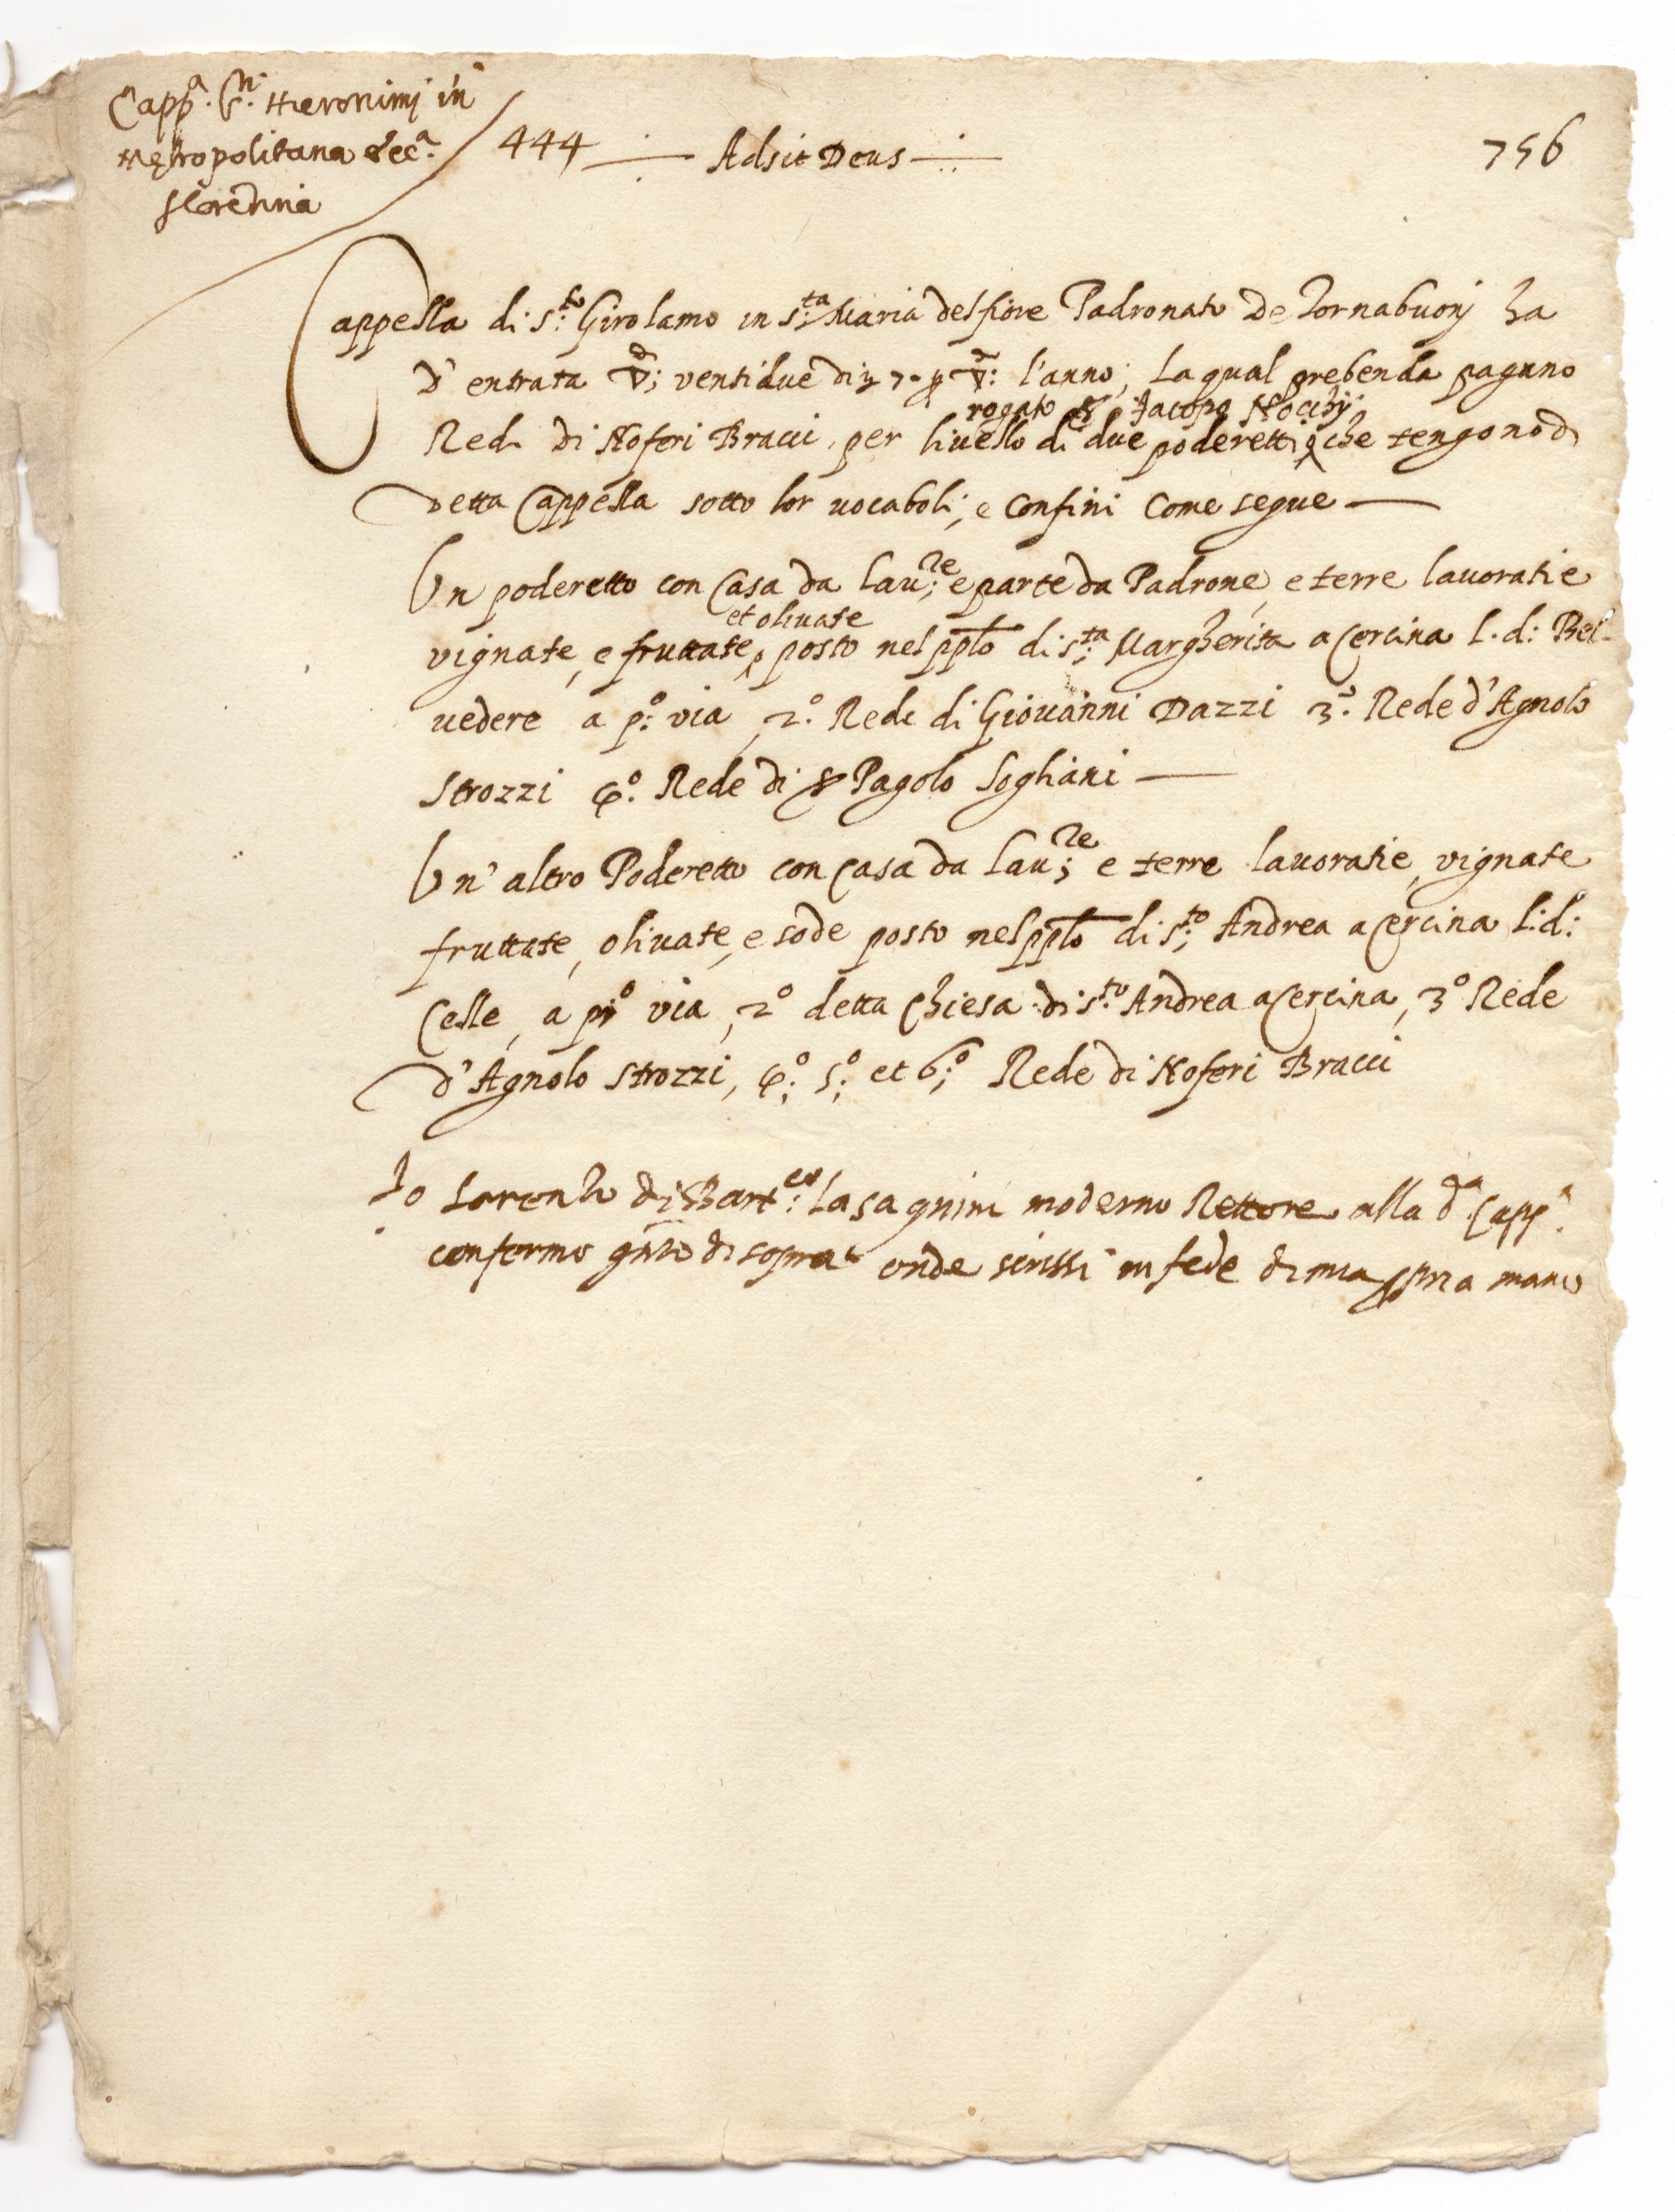 Capp.a S.ti Hieronimi in
Metropolitana Ecc.a
florentina
444 Adsit Deus 756
Cappella di S.to Girolamo in S.ta Maria del fiore Padronato De Tornabuonj ha
d' entrata ventidue di 7 l'anno; La qual prebenda pagano
rogato Jacopo
Redi di Noferi Bracci, per livello di due poderetti che tengono di
Detta Cappella sotto lor vocaboli, e Confini Come segue
Un poderetto con Casa da Lau:re e parte da Padrone, e terre lavoratie
et olivate
vignate, e fruttate, posto nel pplo di S.ta Margherita a Cercina l. d: Bel-
vedere a p:o via, 2.o Rede di Giovanni Dazzi 3.o Rede d'Agnolo
Strozzi 4.o Rede di Pagolo Sogliani
Un' altro Poderetto con Casa da Lau:re e terre lavoratie, vignate
fruttate, olivate, e sode posto nel pplo di S:to Andrea a Cercina l: d:
Celle, a po via, 2o detta Chiesa di S.to Andrea a Cercina, 3o Rede
d'Agnolo Strozzi, 4:o 5:o et 6:o Rede di Noferi Bracci
Io Lorenzo di Bart:eo Lasagnini moderno Rettore alla d.a Capp.a
confermo di sopra onde scrissi in fede di mia ppria mano